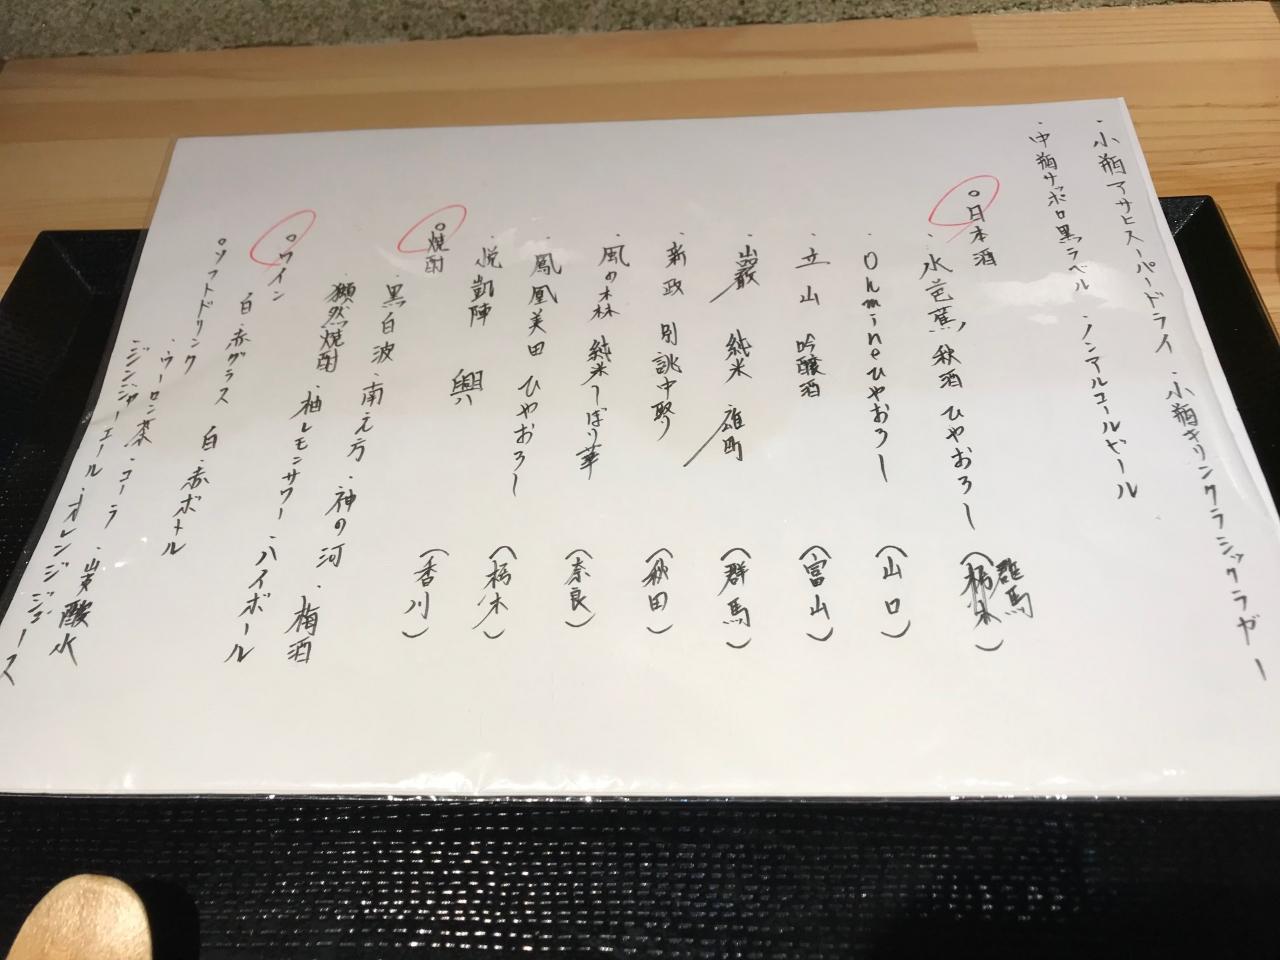 ・小瓶アサヒスーパードライ ・小瓶キリンクラシックラガー
・中瓶サッポロ黒ラベル ・ノンアルコールビール
○日本酒
・水芭蕉 秋酒 ひやおろし (栃木) 群馬
・Ohmineひやおろし (山口)
・立山 吟醸酒 (富山)
・巌 純米 雄町 (群馬)
・新政 別誂中取り (秋田)
・風の森 純米しぼり華 (奈良)
・鳳凰美田 ひやおろし (栃木)
・悦凱陣 興 (香川)
○焼酎
・黒白波 ・南之方 ・神の河 ・梅酒
・獺祭焼酎 ・柚レモンサワー ・ハイボール
○ワイン
白・赤グラス 白・赤ボトル
○ソフトドリンク
・ウーロン茶 ・コーラ ・炭酸水
・ジンジャーエール ・オレンジジュース